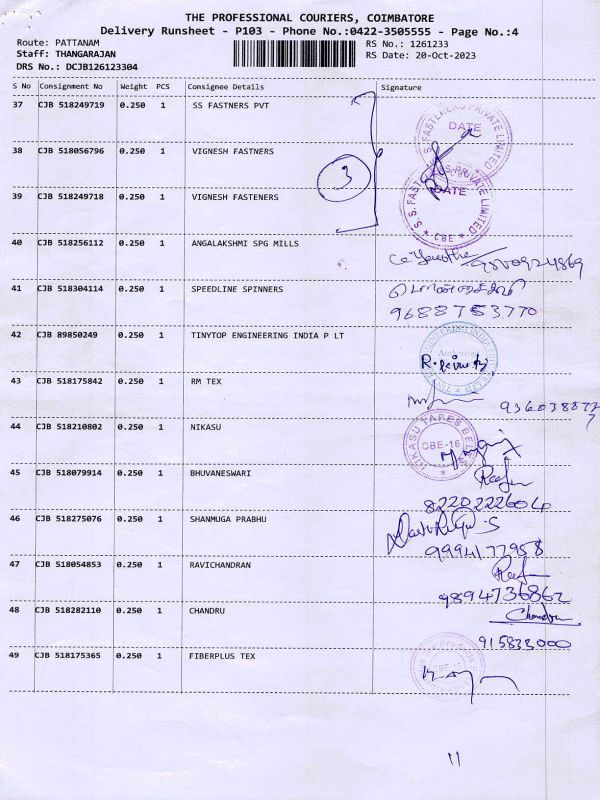 THE PROFESSIONAL COURIERS, COIMBATORE
Delivery Runsheet - P103 - Phone No.:0422-3505555 - Page No.:4
Route: PATTANAM
RS No.: 1261233
Staff: THANGARAJAN
RS Date: 20-Oct-2023
DRS No.: DCJB126123304
S No Consignment No Weight PCS Consignee Details Signature
37 CJB 518249719 0.250 1 SS FASTNERS PVT
S.S.FASTENERS PRIVATE LIMITED
DATE
38 CJB 518056796 0.250 1 VIGNESH FASTNERS
3
39 CJB 518249718 0.250 1 VIGNESH FASTENERS
S.S.FASTENERS PRIVATE LIMITED
DATE
* CBE *
40 CJB 518256112 0.250 1 ANGALAKSHMI SPG MILLS
41 CJB 518304114 0.250 1 SPEEDLINE SPINNERS
9688753770
42 CJB 89850249 0.250 1 TINYTOP ENGINEERING INDIA P LT
43 CJB 518175842 0.250 1 RM TEX
44 CJB 518210802 0.250 1 NIKASU
NIKASU TAPES BELTS
CBE-16
45 CJB 518079914 0.250 1 BHUVANESWARI
8220222604
46 CJB 518275076 0.250 1 SHANMUGA PRABHU
9994177958
47 CJB 518054853 0.250 1 RAVICHANDRAN
9894736862
48 CJB 518282110 0.250 1 CHANDRU
Chandru
915833000
49 CJB 518175365 0.250 1 FIBERPLUS TEX
11